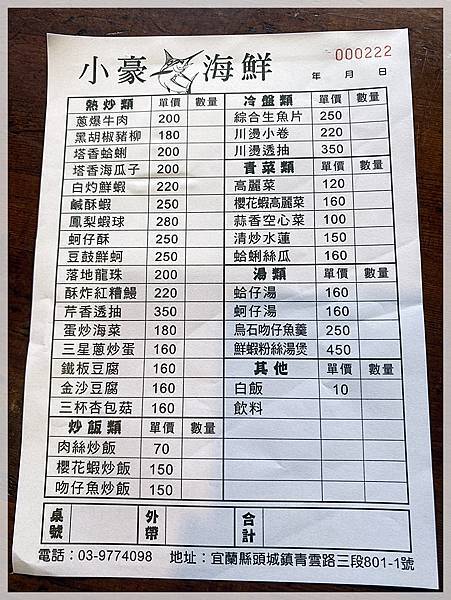 小豪海鮮
000222
年 月 日
熱炒類 單價 數量
蔥爆牛肉 200
黑胡椒豬柳 180
塔香蛤蜊 200
塔香海瓜子 200
白灼鮮蝦 220
鹹酥蝦 250
鳳梨蝦球 280
蚵仔酥 250
豆鼓鮮蚵 250
落地龍珠 200
酥炸紅糟鰻 220
芹香透抽 350
蛋炒海菜 180
三星蔥炒蛋 160
鐵板豆腐 160
金沙豆腐 160
三杯杏包菇 160
炒飯類 單價 數量
肉絲炒飯 70
櫻花蝦炒飯 150
吻仔魚炒飯 150
冷盤類 單價 數量
綜合生魚片 250
川燙小卷 220
川燙透抽 350
青菜類 單價 數量
高麗菜 120
櫻花蝦高麗菜 160
蒜香空心菜 100
清炒水蓮 150
蛤蜊絲瓜 160
湯類 單價 數量
蛤仔湯 160
蚵仔湯 160
烏石吻仔魚羹 250
鮮蝦粉絲湯煲 450
其他 單價 數量
白飯 10
飲料
桌號 外帶 合計
電話：03-9774098 地址：宜蘭縣頭城鎮青雲路三段801-1號